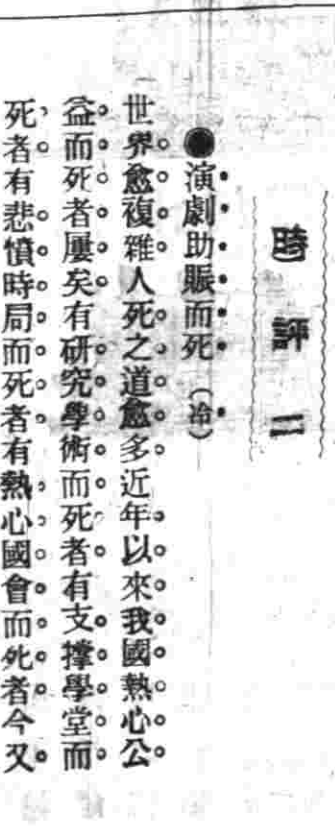 時評二
●演劇助賑而死（冷）
世界愈複雜人死之道愈多近年以來我國熱心公
益而死者屢矣有研究學術而死者有支撐學堂而
死者有悲憤時局而死者有熱心國會而死者今又